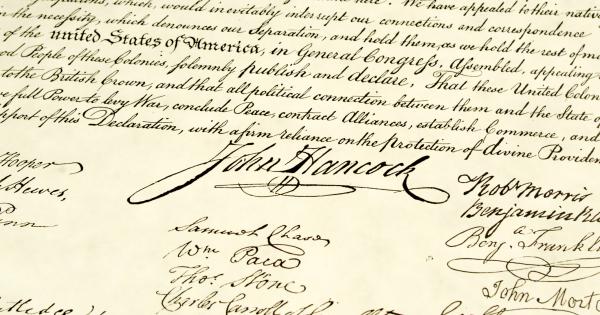 which, would inevitably interrupt our connections and correspondence
We have appealed to their native
the necessity, which denounces our Separation, and hold them, as we hold the rest of
of the united States of America, in General Congress, Assembled, appealing
People of these Colonies, solemnly publish and declare, That these United
to the British Crown, and that all political connection between them and the State of
full Power to levy War, conclude Peace, contract Alliances, establish Commerce, and
of this Declaration, with a firm reliance on the protection of divine
John Hancock
Hooper
Hewes,
Penn
Samuel Chase
Wm Paca
Thos. Stone
Charles Carroll of
Robt Morris
Benjamin
Benj. Frankl
John Mort